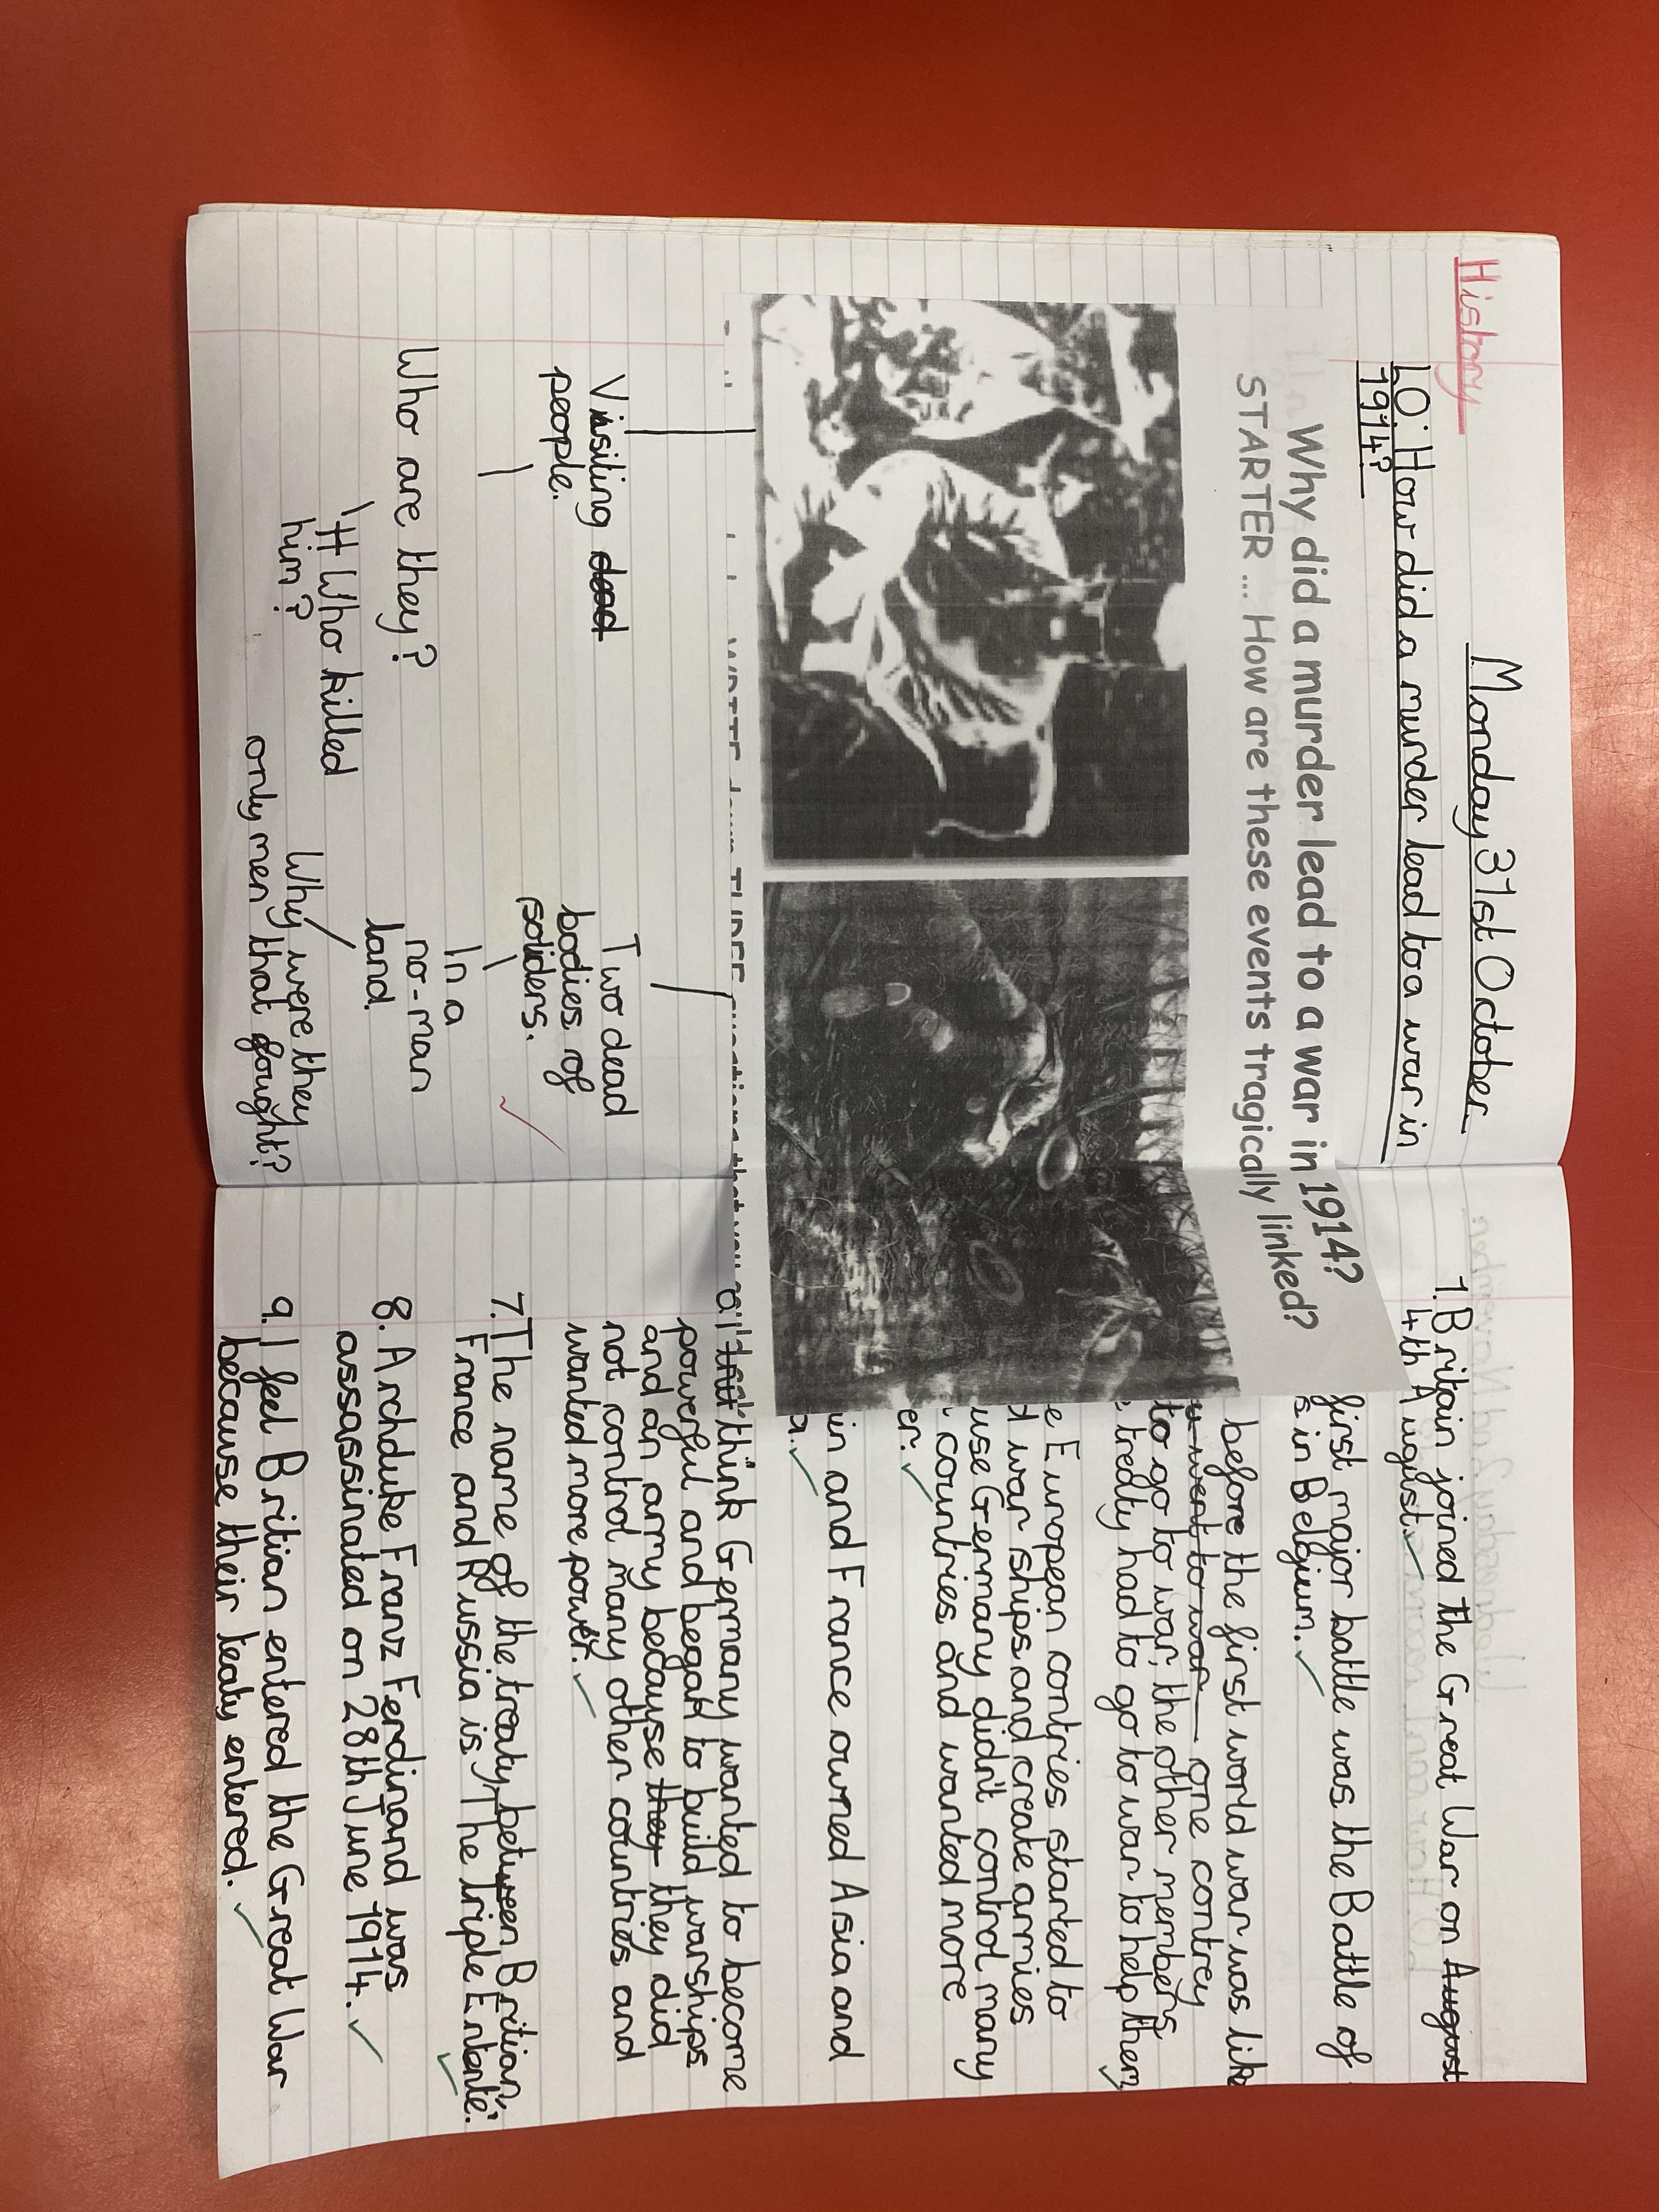 History
Monday 31st October
LO: How did a murder lead to a war in
1914?
Why did a murder lead to a war in 1914?
STARTER ... How are these events tragically linked?
Visiting dead
people.
Who are they?
Who killed
him?
Two dead
bodies of
soliders.
In a
no-man
land.
Why were they
only men that fought?
1. Britain joined the Great War on August
4th August.
first major battle was the Battle of
s in Belgium.
before the first world war was like
went to war one contrey
to go to war, the other members
tredty had to go to war to help them
e European contries started to
d war ships and create armies
use Germany didn't control many
countries and wanted more
er.
in and France owned Asia and
a.
think Germany wanted to become
powerful and began to build warships
and an army because they they did
not control many other countries and
wanted more power.
7. The name of the treaty between Britian,
France and Russia is 'The Triple Entante.'
8. Archduke Franz Ferdinand was
assassinated on 28th June 1914.
9. I feel Britian entered the Great War
because their teaty entered.